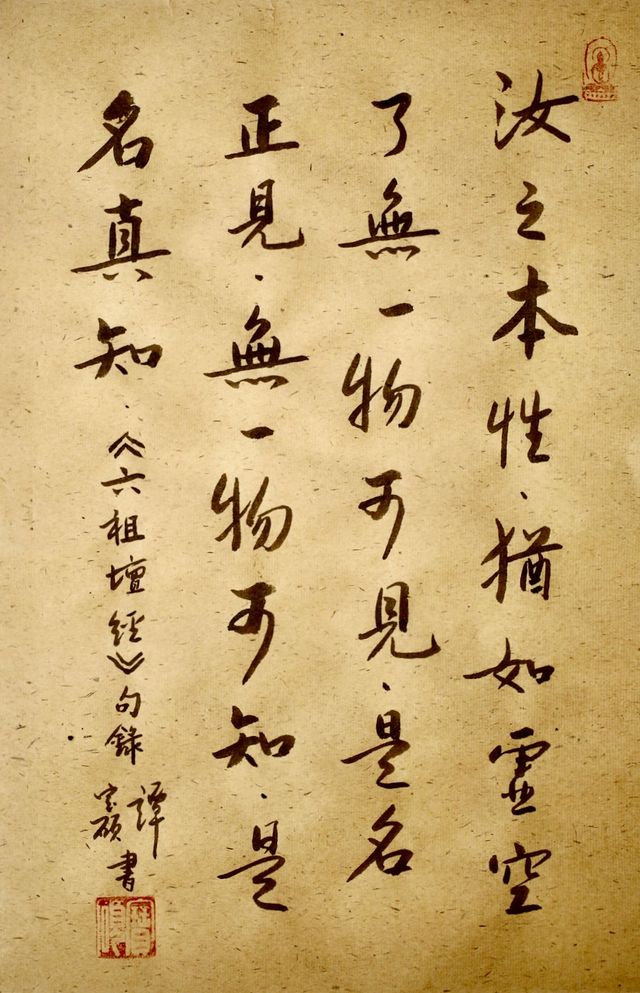 汝之本性、猶如虛空
了無一物可見、是名
正見、無一物可知、是
名真知、《六祖壇經》句錄
譚寶碩書